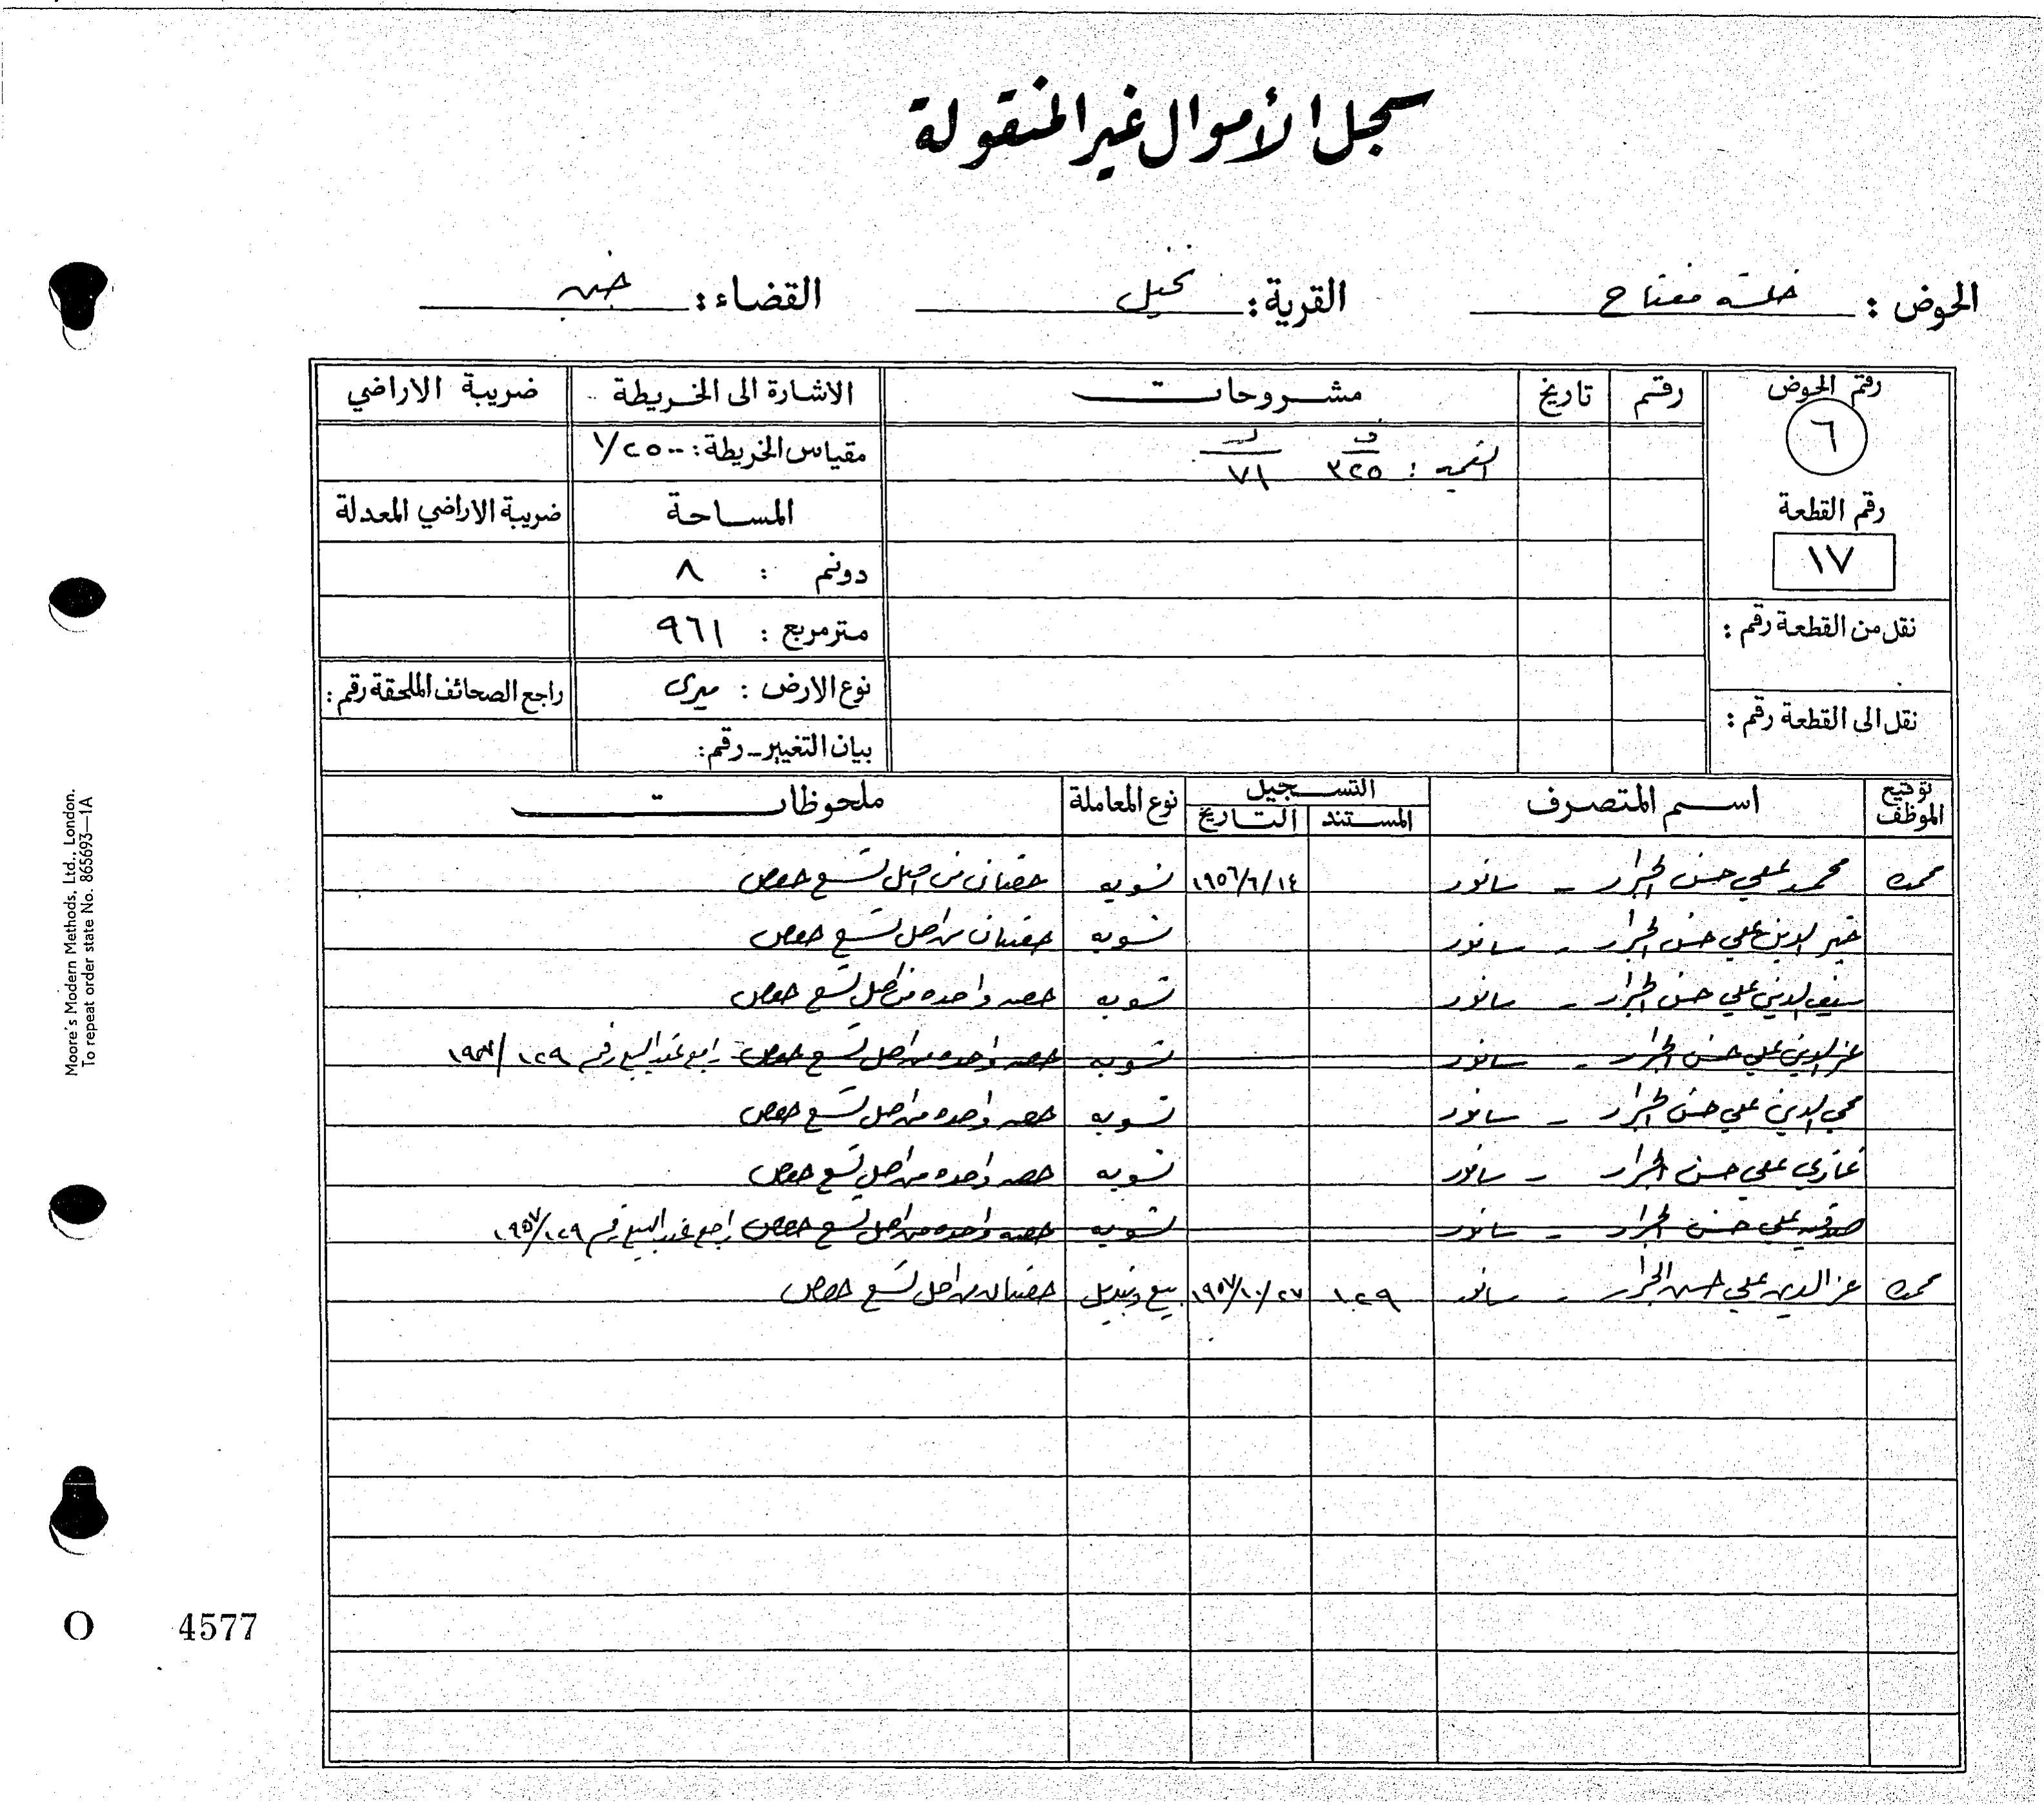 سجل الأموال غير المنقولة
الحوض : خلة مفتاح القرية : نخيل القضاء : جنين
رقم الحوض رقم تاريخ مشروحات الاشارة الى الخريطة ضريبة الاراضي
٦
القيمة : ف ٣٢٥ د ٧١ مقياس الخريطة : ١/٢٥٠٠
رقم القطعة المساحة ضريبة الاراضي المعدلة
١٧ دونم : ٨
نقل من القطعة رقم : متر مربع : ٩٦١
نوع الارض : ميري راجع الصحائف الملحقة رقم :
نقل الى القطعة رقم : بيان التغيير - رقم :
توقيع الموظف اسم المتصرف التسجيل نوع المعاملة ملحوظات
المستند التاريخ
محمد علي حسن الجرار - سانور ١٩٥٦/٦/١٤ تسويه حصتان من اصل تسع حصص
خير الدين علي حسن الجرار - سانور تسويه حصتان من اصل تسع حصص
سيف الدين علي حسن الجرار - سانور تسويه حصه واحده من اصل تسع حصص
عز الدين علي حسن الجرار - سانور تسويه حصه واحده من اصل تسع حصص راجع عقد البيع رقم ١٠٢٩ /١٩٥٧
محي الدين علي حسن الجرار - سانور تسويه حصه واحده من اصل تسع حصص
غازي علي حسن الجرار - سانور تسويه حصه واحده من اصل تسع حصص
صدقيه علي حسن الجرار - سانور تسويه حصه واحده من اصل تسع حصص راجع عقد البيع رقم ١٠٢٩/٩٥٧
عز الدين علي حسن الجرار - سانور ١٠٢٩ ١٩٥٧/١٠/٢٧ بيع وتبديل حصتان من اصل تسع حصص
Moore's Modern Methods, Ltd., London.
To repeat order state No. 865693—1A
O 4577